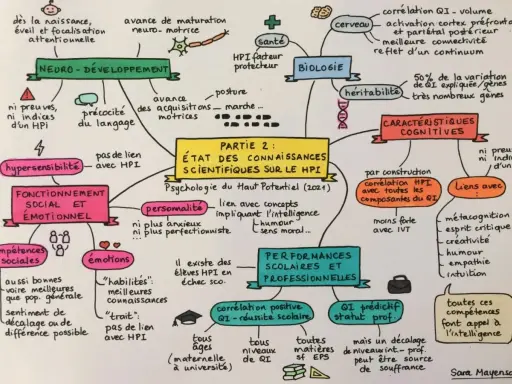 dès la naissance,
éveil et focalisation
attentionnelle
avance de maturation
neuro-motrice
NEURO-DÉVELOPPEMENT
ni preuves,
ni indices
d'un HPI
précocité
du langage
avance
des acquisitions
motrices
posture
marche ...
santé
HPI facteur
protecteur
BIOLOGIE
cerveau
corrélation QI - volume
activation cortex préfronta
et pariétal postérieur
meilleure connectivité
reflet d'un continuum
héritabilité
50% de la variation
de QI expliquée/gènes
très nombreux gènes
PARTIE 2 :
ÉTAT DES CONNAISSANCES
SCIENTIFIQUES SUR LE HPI
Psychologie du Haut Potentiel (2021)
CARACTÉRISTIQUES
COGNITIVES
par construction
corrélation HPI
avec toutes les
composantes du QI
moins forte
avec IVT
ni preu
ni indic
d'un
Liens avec :
métacognition
esprit critique
créativité
humour
empathie
intuition
toutes ces
compétences
font appel à
l'intelligence
hypersensibilité
pas de lien
avec HPI
FONCTIONNEMENT
SOCIAL ET
ÉMOTIONNEL
personnalité
lien avec concepts
impliquant l'intelligence
humour
sens moral...
ni plus anxieux
ni plus perfectionniste...
mpétences
sociales
aussi bonnes
voire meilleures
que pop. générale
sentiment de
décalage ou de
différence possible
émotions
"habilités":
meilleures
connaissances
"trait":
pas de lien
avec HPI
PERFORMANCES
SCOLAIRES ET
PROFESSIONNELLES
il existe des
élèves HPI en
échec sco.
corrélation positive
QI - réussite scolaire
tous
âges
(maternelle
à université)
tous
niveaux
de QI
toutes
matières
sf EPS
QI prédictif
statut prof.
mais un décalage
de niveau int. - prof.
peut être source
de souffrance
Sara Mayens